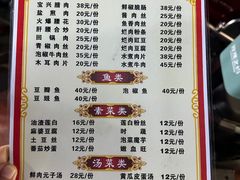 宝兴腊肉 38元/份 尖椒肥肠
盐煎肉 20元/份 酱肉丝
火爆腰花 30元/份 鱼香肉丝
肝腰合炒 35元/份 烂肉粉条
回锅肉 30元/份 烂肉豇豆
青椒肉丝 25元/份 烂肉豆腐
泡椒牛肉丝 35元/份 水煮牛肉
木耳肉片 20元/份 水煮牛肉
鱼类
豆瓣鱼 40元/份 泡椒鱼 40元/份
豆豉鱼 40元/份
素菜类
油渣莲白 16元/份 莲白粉丝 12元/份
麻婆豆腐 12元/份 时蔬 12元/份
土豆丝 12元/份 泡菜魔芋 12元/份
番茄炒蛋 16元/份 嫩血旺 12元/份
汤菜类
鲜肉元子汤 28元/份 黄瓜皮蛋汤 12元/份